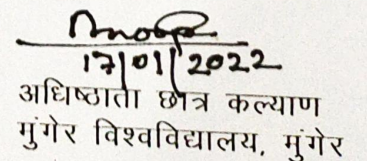 17/01/2022
अधिष्ठाता छात्र कल्याण
मुंगेर विश्वविद्यालय, मुंगेर